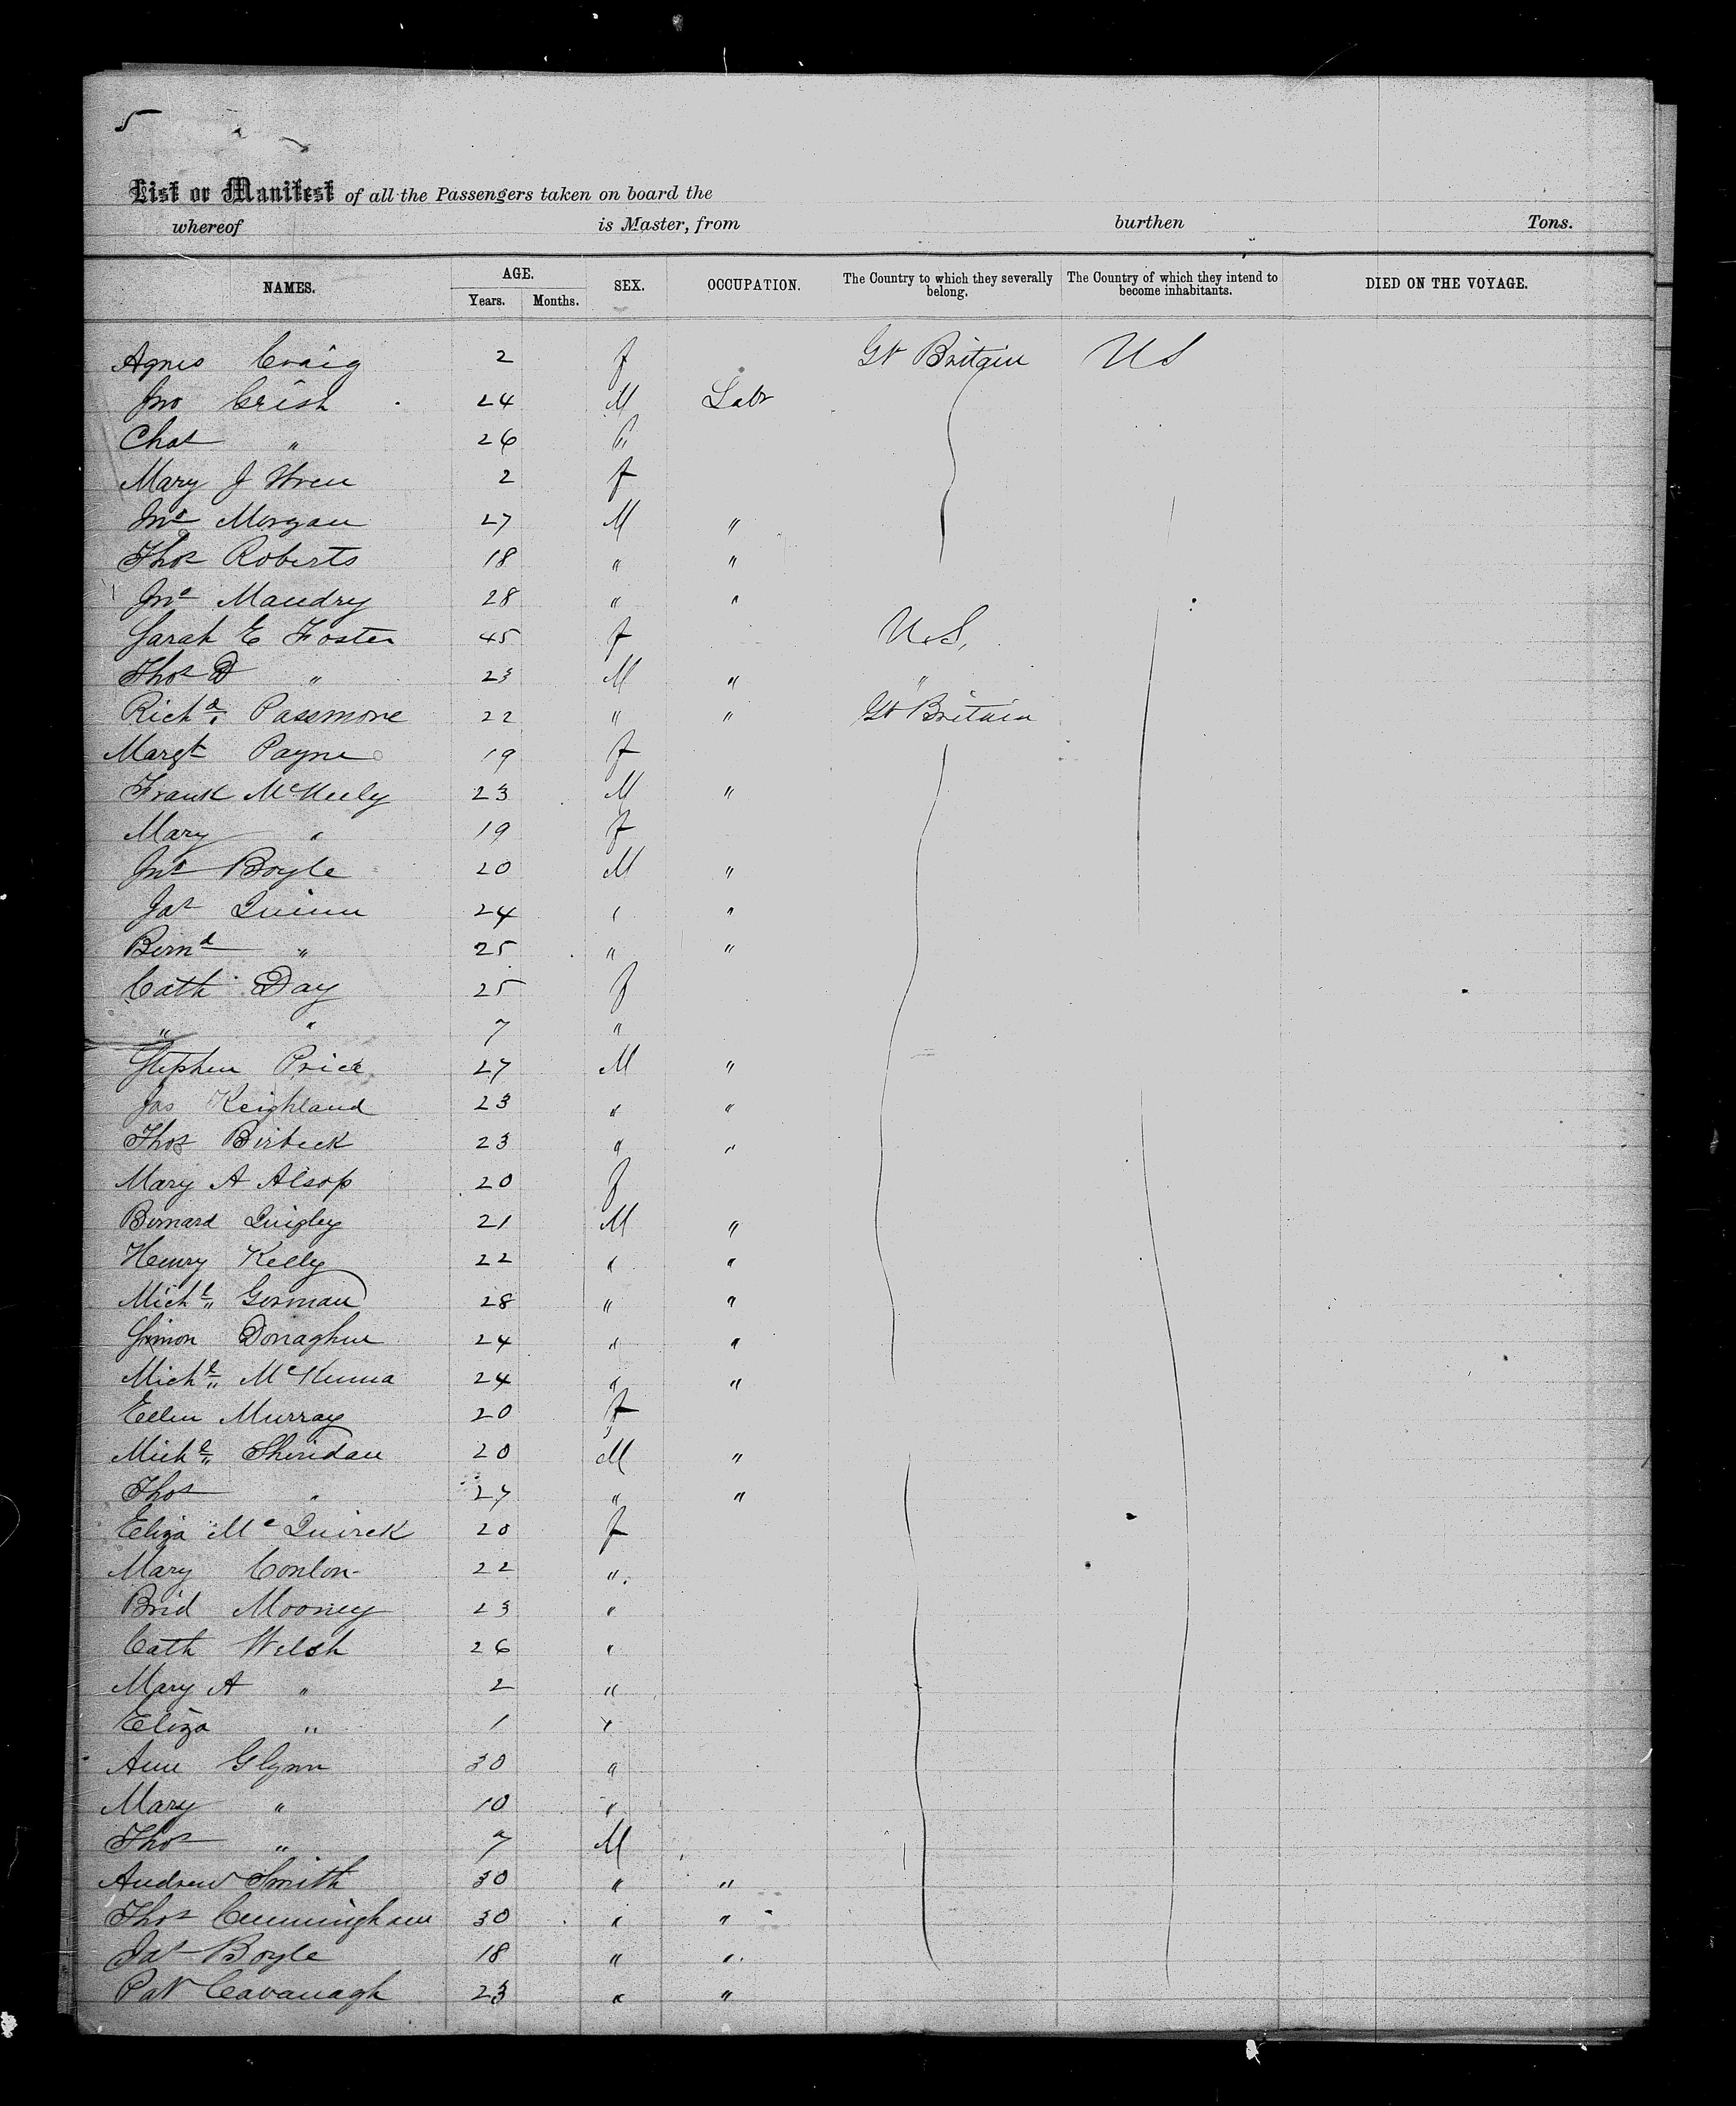 5
List or Manifest of all the Passengers taken on board the
whereof is Master, from burthen Tons.
NAMES. AGE. Years. Months. SEX. OCCUPATION. The Country to which they severally belong. The Country of which they intend to become inhabitants. DIED ON THE VOYAGE.
Agnes Craig 2 f Gt Britain US
Jno Crish 24 M Labr
Chas " 26
Mary J Wren 2 f
Jno Morgan 27 M "
Thos Roberts 18 " "
Jno Maudry 28 " "
Sarah E Foster 45 f U.S.
Thos D " 23 M " "
Richd. Passmore 22 " " Gt Britain
Margt Payne 19 f
Frank McNeely 23 M "
Mary " 19 f
Jno Boyle 20 M "
Jas Quinn 24 " "
Bernd " 25 " "
Cath Day 25 f
" " 7 "
Stephen Price 27 M "
Jas Keighland 23 " "
Thos Birbeck 23 " "
Mary A Alsop 20 f
Bernard Quigley 21 M "
Henry Kelly 22 " "
Michl Gorman 28 " "
Simon Donaghue 24 " "
Michl McKenna 24 " "
Ellen Murray 20 f
Michl Sheridan 20 M "
Thos " 27 " "
Eliza McQuirck 20 f
Mary Conlon 22 "
Brid Mooney 23 "
Cath Welsh 26 "
Mary A " 2 "
Eliza " 1 "
Ann Glynn 30 "
Mary " 10 "
Thos " 7 M
Andrew Smith 30 " "
Thos Cunningham 30 " "
Jas Boyle 18 " "
Pat Cavanagh 23 " "